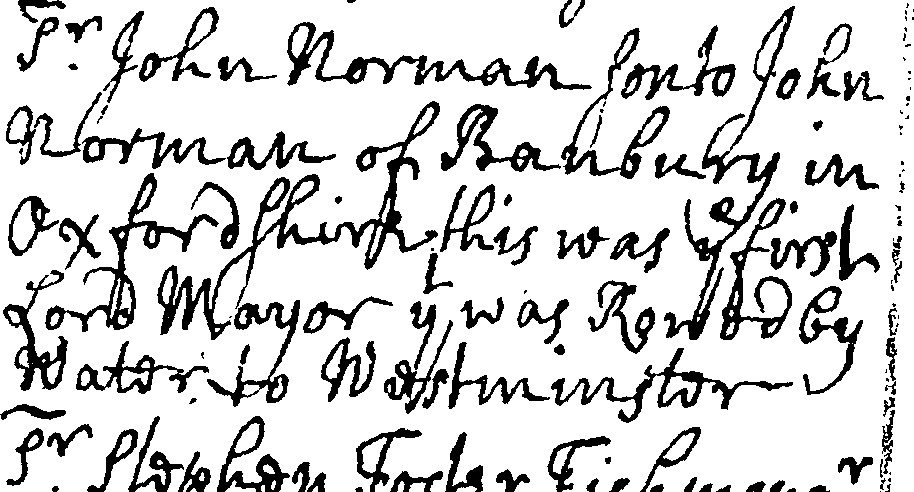 Sr. John Norman son to John
Norman of Banbury in
Oxfordshire, this was ye first
Lord Mayor yt was Rowed by
Water. to Westminster
Sr. Stephen Foster Fishmongr